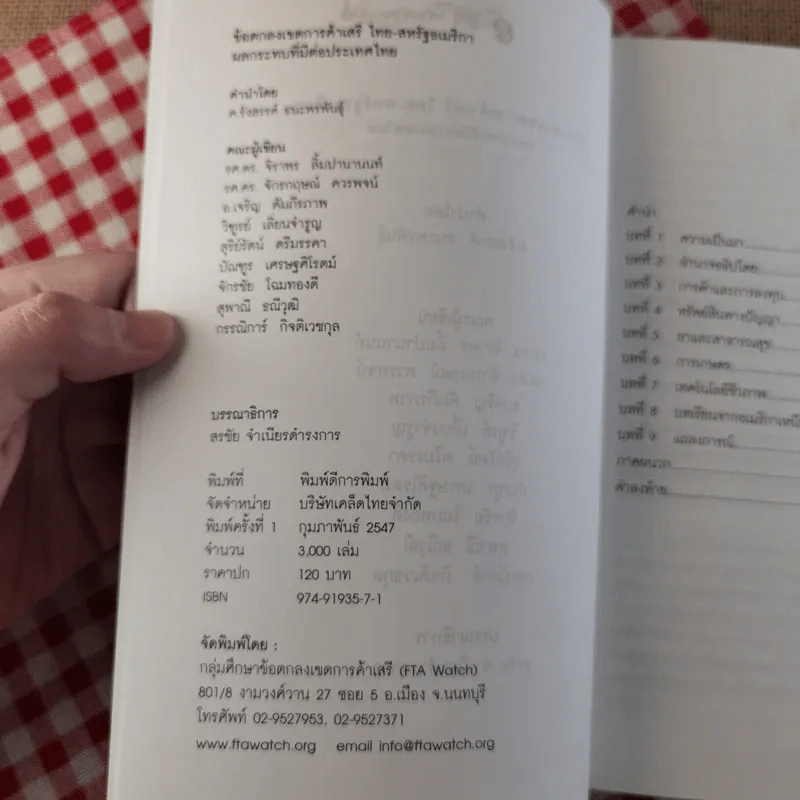 ข้อตกลงเขตการค้าเสรี ไทย-สหรัฐอเมริกา
ผลกระทบที่มีต่อประเทศไทย
คำนำโดย
ศ.รังสรรค์ ธนะพรพันธุ์
คณะผู้เขียน
รศ.ดร. จิราพร ลิ้มปานานนท์
รศ.ดร. จักรกฤษณ์ ควรพจน์
อ.เจริญ คัมภีรภาพ
วิฑูรย์ เลี่ยนจำรูญ
สุรีย์รัตน์ ตรีมรรคา
บัณฑูร เศรษฐศิโรตม์
จักรชัย โฉมทองดี
สุพาณี ธณีวุฒิ
กรรณิการ์ กิจติเวชกุล
บรรณาธิการ
สรชัย จำเนียรดำรงการ
พิมพ์ที่ พิมพ์ดีการพิมพ์
จัดจำหน่าย บริษัทเคล็ดไทยจำกัด
พิมพ์ครั้งที่ 1 กุมภาพันธ์ 2547
จำนวน 3,000 เล่ม
ราคาปก 120 บาท
ISBN 974-91935-7-1
จัดพิมพ์โดย :
กลุ่มศึกษาข้อตกลงเขตการค้าเสรี (FTA Watch)
801/8 งามวงศ์วาน 27 ซอย 5 อ.เมือง จ.นนทบุรี
โทรศัพท์ 02-9527953, 02-9527371
www.ftawatch.org email info@ftawatch.org
คำนำ
บทที่ 1 ความเป็นมา
บทที่ 2 อำนาจอธิปไตย
บทที่ 3 การค้าและการลงทุน
บทที่ 4 ทรัพย์สินทางปัญญา
บทที่ 5 ยาและสาธารณสุข
บทที่ 6 การเกษตร
บทที่ 7 เทคโนโลยีชีวภาพ
บทที่ 8 บทเรียนจากอเมริกาเหนือ
บทที่ 9 แถลงการณ์
ภาคผนวก
คำลงท้าย